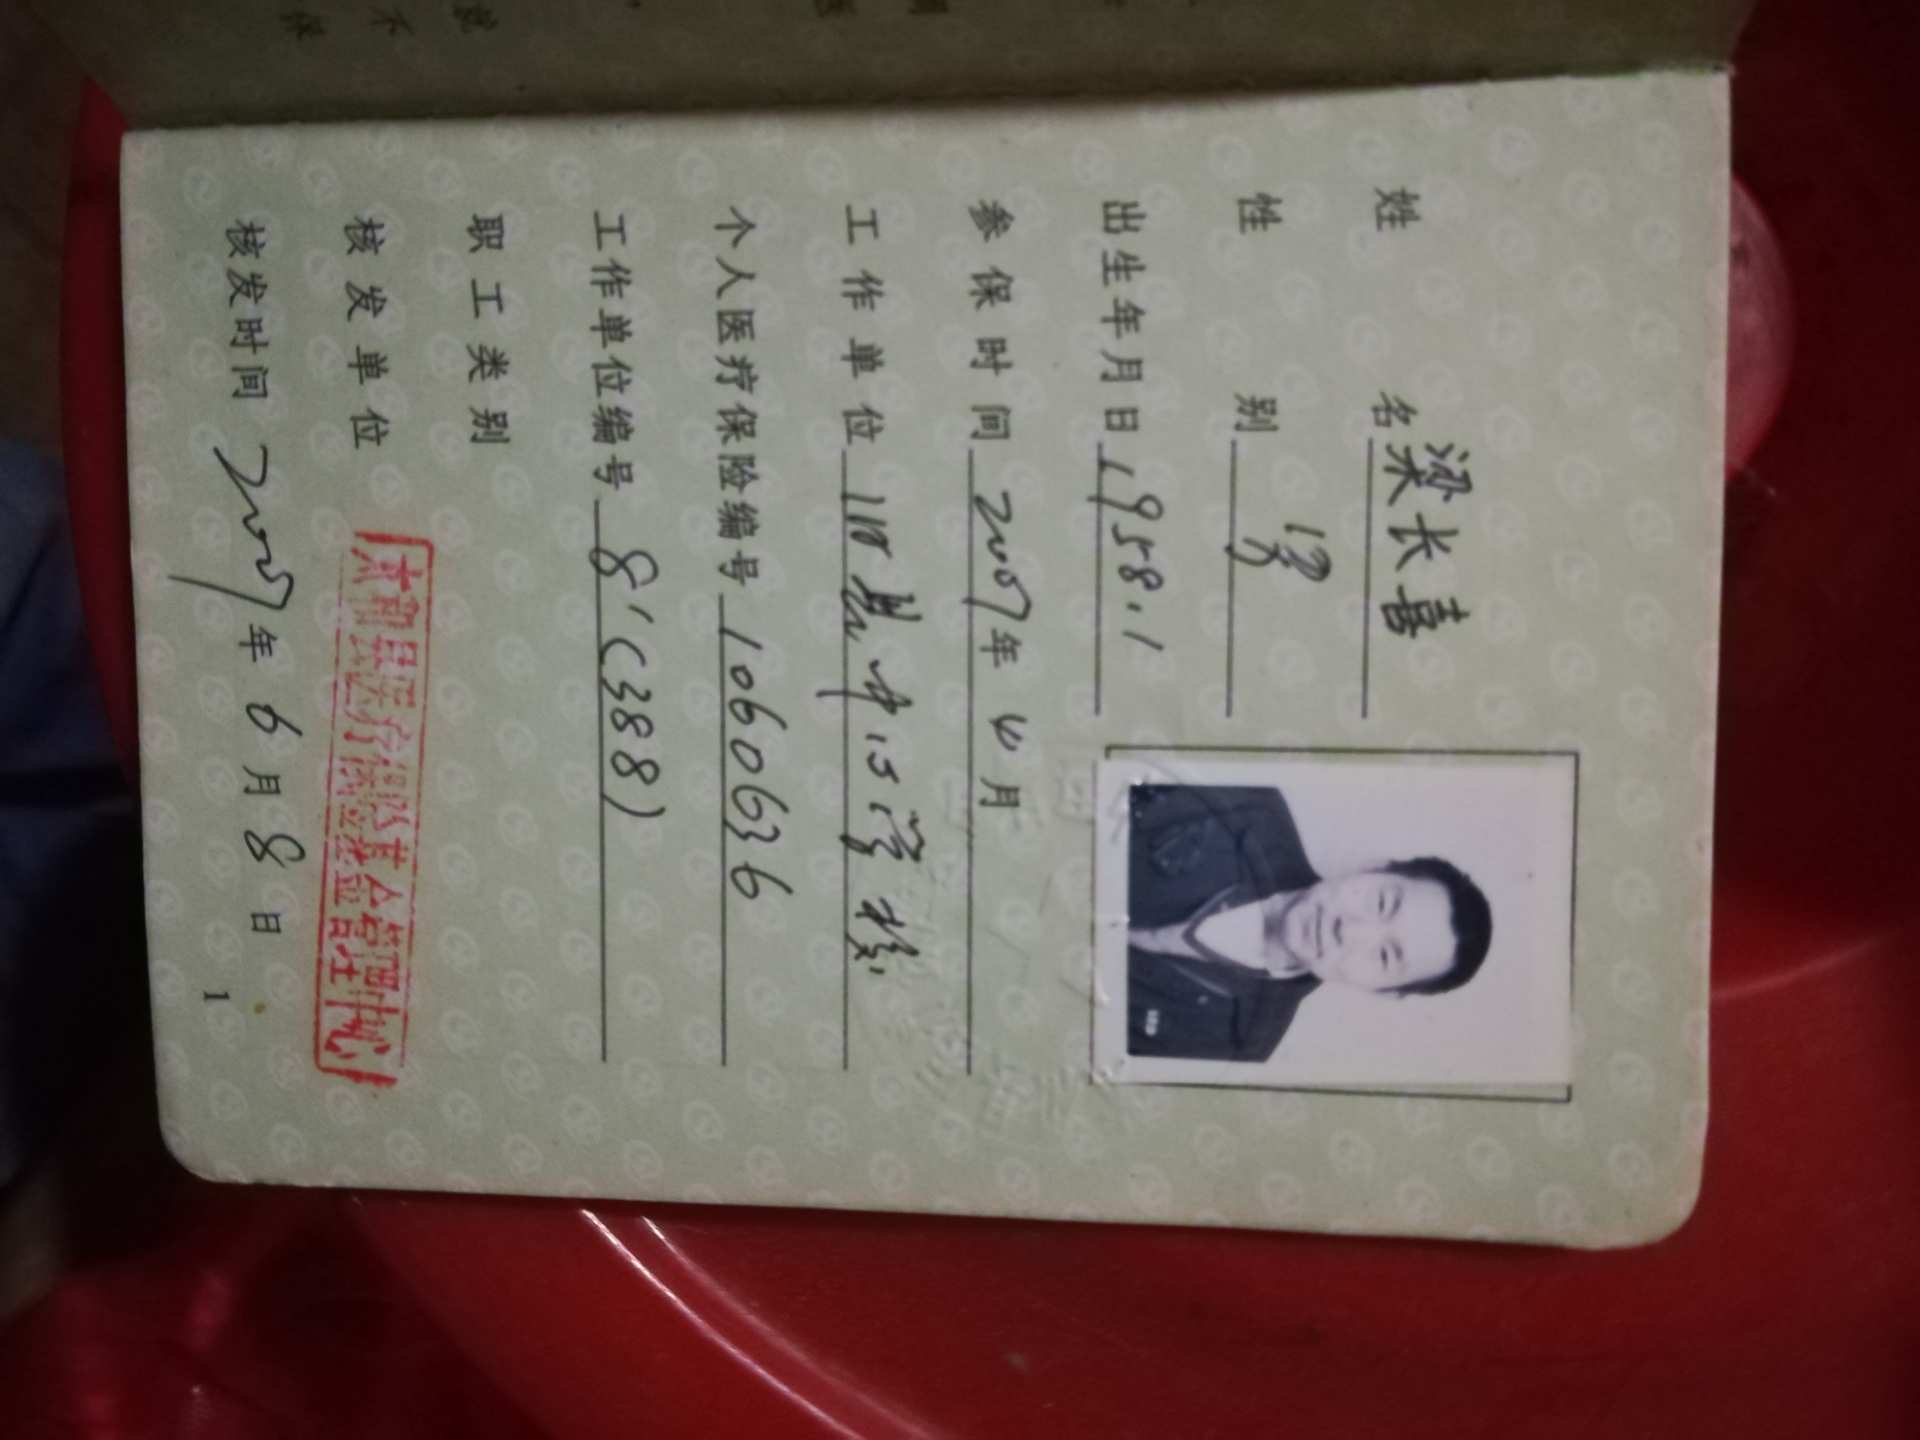 姓 名 梁长喜
性 别 男
出生年月日 1958.1
参保时间 2007年4月
工作单位
个人医疗保险编号 1060636
工作单位编号 8'(388)
职工类别
核发单位 医疗保险基金管理中心
核发时间 2007年6月8日
1